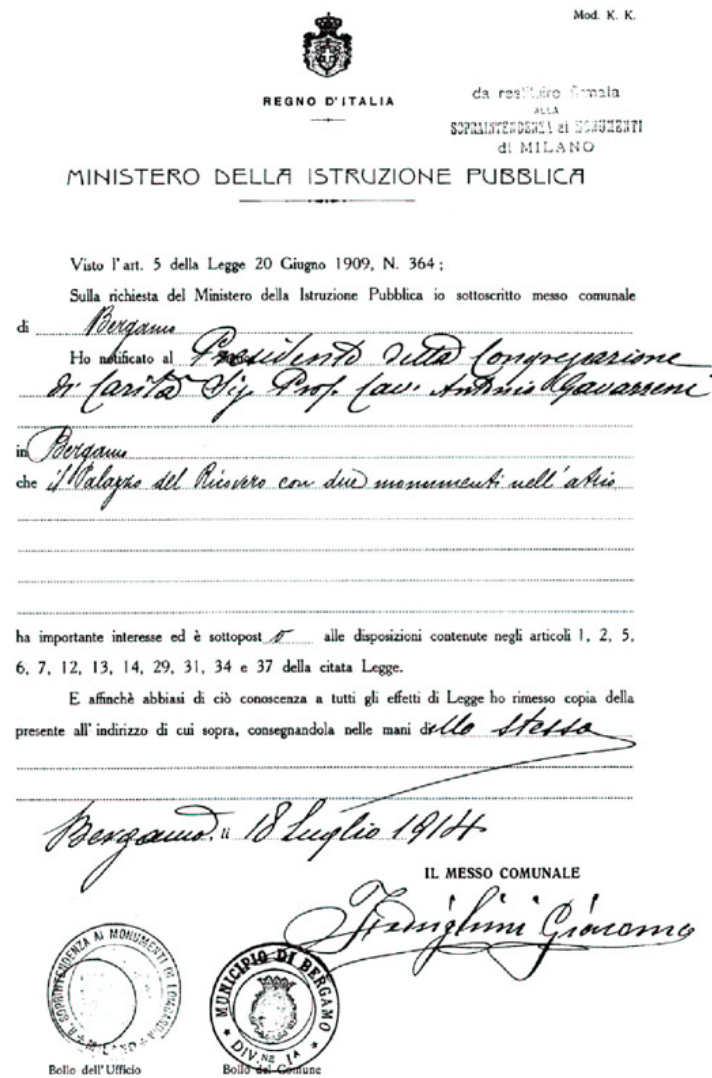 Mod. K. K.
REGNO D'ITALIA
da restituire firmata
ALLA
SOPRAINTENDENZA ai MONUMENTI
di MILANO
MINISTERO DELLA ISTRUZIONE PUBBLICA
Visto l'art. 5 della Legge 20 Giugno 1909, N. 364;
Sulla richiesta del Ministero della Istruzione Pubblica io sottoscritto messo comunale
di Bergamo
Ho notificato al Presidente della Congregazione
di Carità Sig. Prof. Cav. Antonio Gavazzeni
in Bergamo
che il Palazzo del Ricovero con due monumenti nell'atrio
ha importante interesse ed è sottopost o alle disposizioni contenute negli articoli 1, 2, 5,
6, 7, 12, 13, 14, 29, 31, 34 e 37 della citata Legge.
E affinchè abbiasi di ciò conoscenza a tutti gli effetti di Legge ho rimesso copia della
presente all'indirizzo di cui sopra, consegnandola nelle mani dello stesso
Bergamo, li 18 Luglio 1914
IL MESSO COMUNALE
Giacomo
R. SOPRINTENDENZA AI MONUMENTI DI LOMBARDIA
MILANO
MUNICIPIO DI BERGAMO
DIV.NE IA
Bollo dell'Ufficio
Bollo del Comune